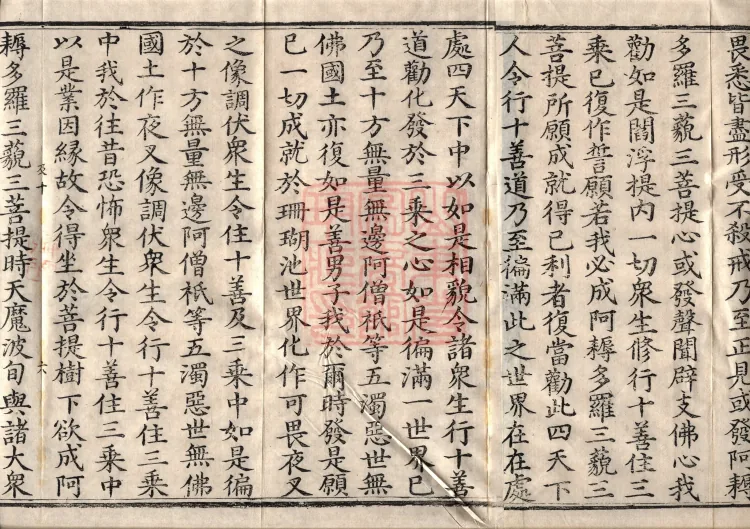 畏悉皆盡形受不殺戒乃至正見或發阿耨
多羅三藐三菩提心或發聲聞辟支佛心我
勸如是閻浮提內一切衆生修行十善住三
乘已復作誓願若我必成阿耨多羅三藐三
菩提所願成就得己利者復當勸此四天下
人令行十善道乃至徧滿此之世界在在處
處四天下中以如是相貌令諸衆生行十善
道勸化發於三乘之心如是徧滿一世界已
乃至十方無量無邊阿僧祇等五濁惡世無
佛國土亦復如是善男子我於爾時發是願
已一切成就於珊瑚池世界化作可畏夜叉
之像調伏衆生令住十善及三乘中如是徧
於十方無量無邊阿僧祇等五濁惡世無佛
國土作夜叉像調伏衆生令行十善住三乘
中我於往昔恐怖衆生令行十善住三乘中
以是業因緣故令得坐於菩提樹下欲成阿
耨多羅三藐三菩提時天魔波旬與諸大衆